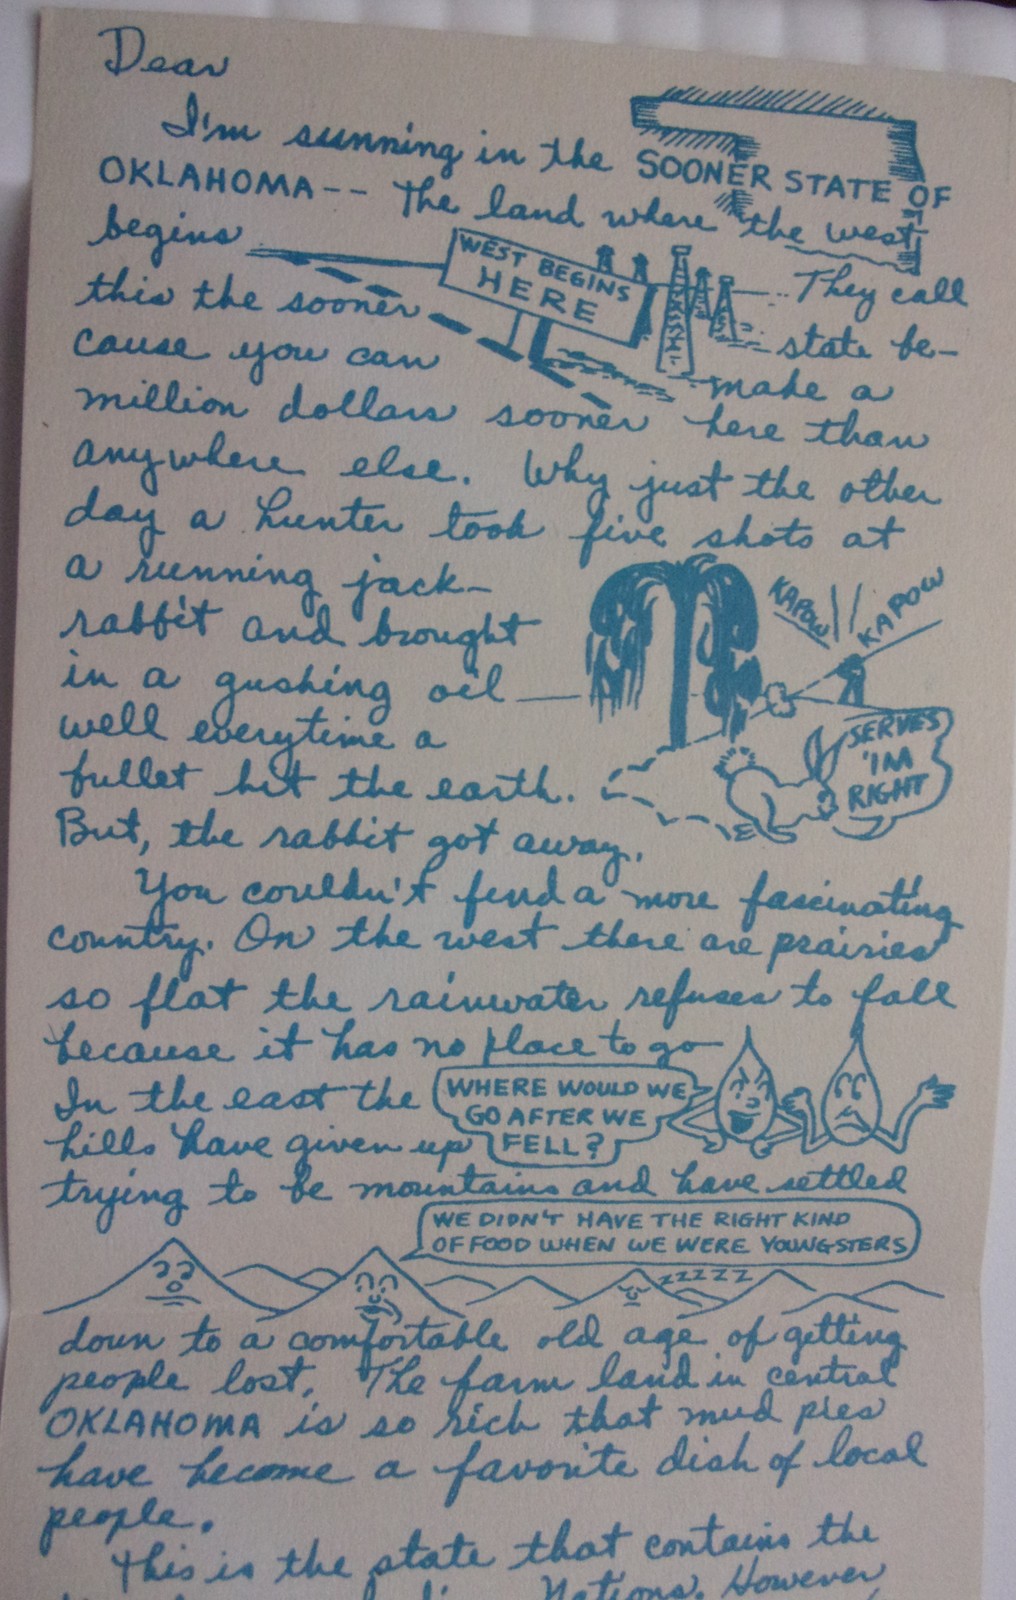 Dear
I'm sunning in the SOONER STATE OF
OKLAHOMA-- The land where the west
begins
WEST BEGINS
HERE
They call
this the sooner
state be-
cause you can
make a
million dollars sooner here than
anywhere else. Why just the other
day a hunter took five shots at
a running jack-
rabbit and brought
in a gushing oil
well everytime a
bullet hit the earth.
KAPOW
KAPOW
SERVES
'IM
RIGHT
But, the rabbit got away.
You couldn't find a more fascinating
country. On the west there are prairies
so flat the rainwater refuses to fall
because it has no place to go
In the east the
hills have given up
WHERE WOULD WE
GO AFTER WE
FELL?
trying to be mountains and have settled
WE DIDN'T HAVE THE RIGHT KIND
OF FOOD WHEN WE WERE YOUNGSTERS
ZZZZZZ
down to a comfortable old age of getting
people lost. The farm land in central
OKLAHOMA is so rich that mud pies
have become a favorite dish of local
people.
This is the state that contains the
Nations. However,